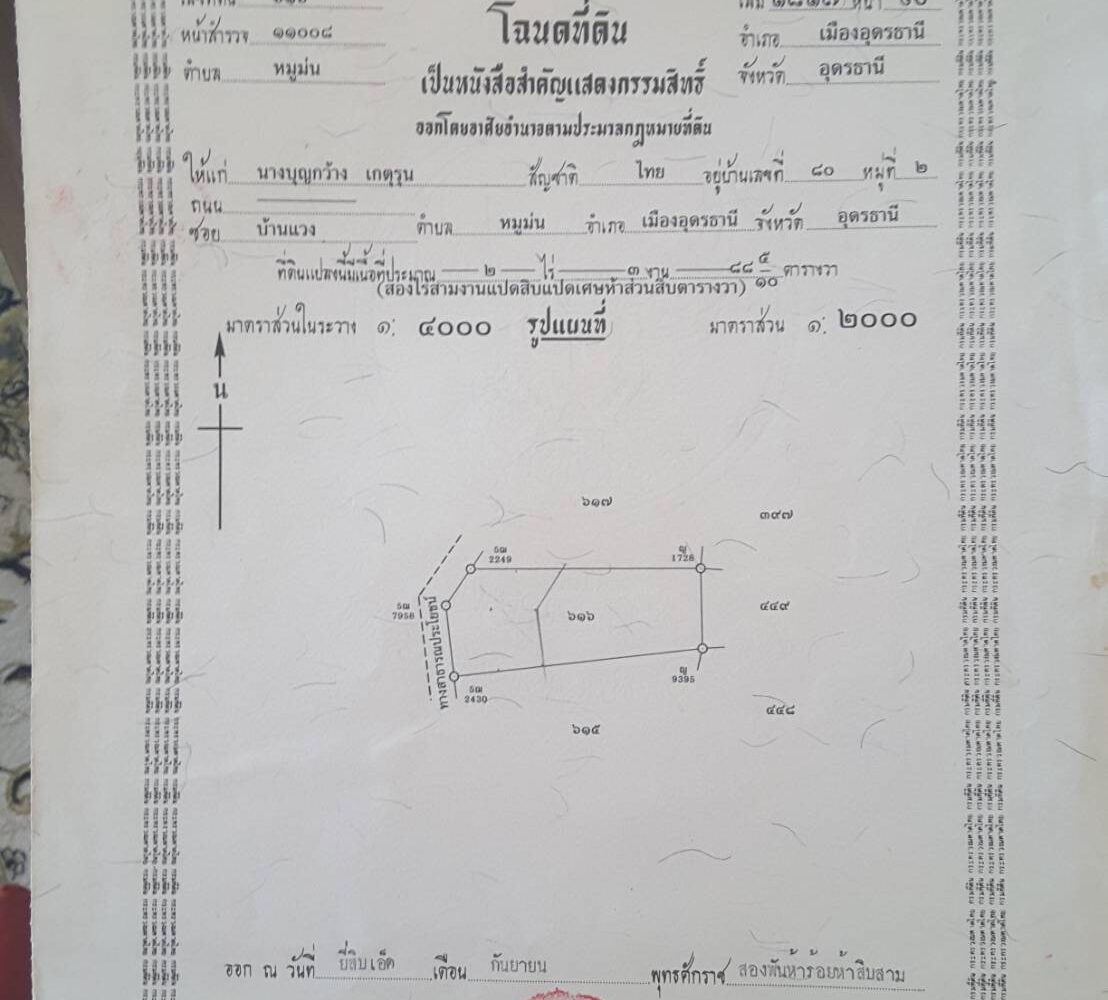 หน้าสำรวจ ๑๑๐๐๘ โฉนดที่ดิน อำเภอ เมืองอุดรธานี
ตำบล หมูม่น เป็นหนังสือสำคัญแสดงกรรมสิทธิ์ จังหวัด อุดรธานี
ออกโดยอาศัยอำนาจตามประมวลกฎหมายที่ดิน
ให้แก่ นางบุญกว้าง เกตุรุน สัญชาติ ไทย อยู่บ้านเลขที่ ๘๐ หมู่ที่ ๒
ถนน
ซอย บ้านแวง ตำบล หมูม่น อำเภอ เมืองอุดรธานี จังหวัด อุดรธานี
ที่ดินแปลงนี้มีเนื้อที่ประมาณ ๒ ไร่ ๓ งาน ๘๘ ๕/๑๐ ตารางวา
(สองไร่สามงานแปดสิบแปดเศษห้าส่วนสิบตารางวา)
มาตราส่วนในระวาง ๑: ๔๐๐๐ รูปแผนที่ มาตราส่วน ๑: ๒๐๐๐
น
๖๑๗
๓๙๗
5ฒ
2249
ญ
1728
5ฒ
7956
๖๑๖
๔๔๙
ทางสาธารณประโยชน์
5ฒ
2430
ญ
9395
๔๔๘
๖๑๕
ออก ณ วันที่ ยี่สิบเอ็ด เดือน กันยายน พุทธศักราช สองพันห้าร้อยห้าสิบสาม